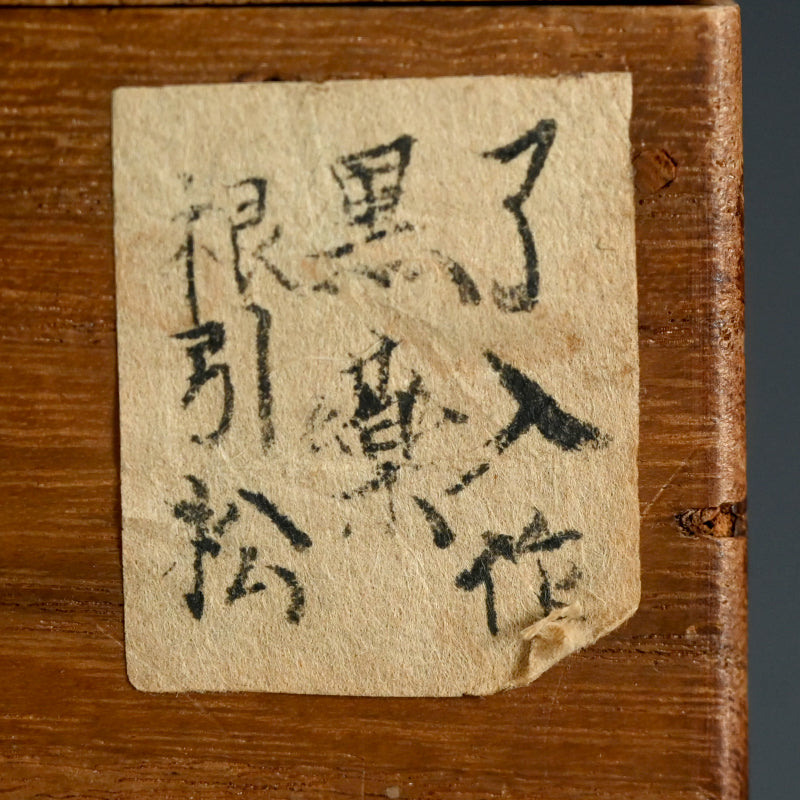 了入作
黒楽
根引松